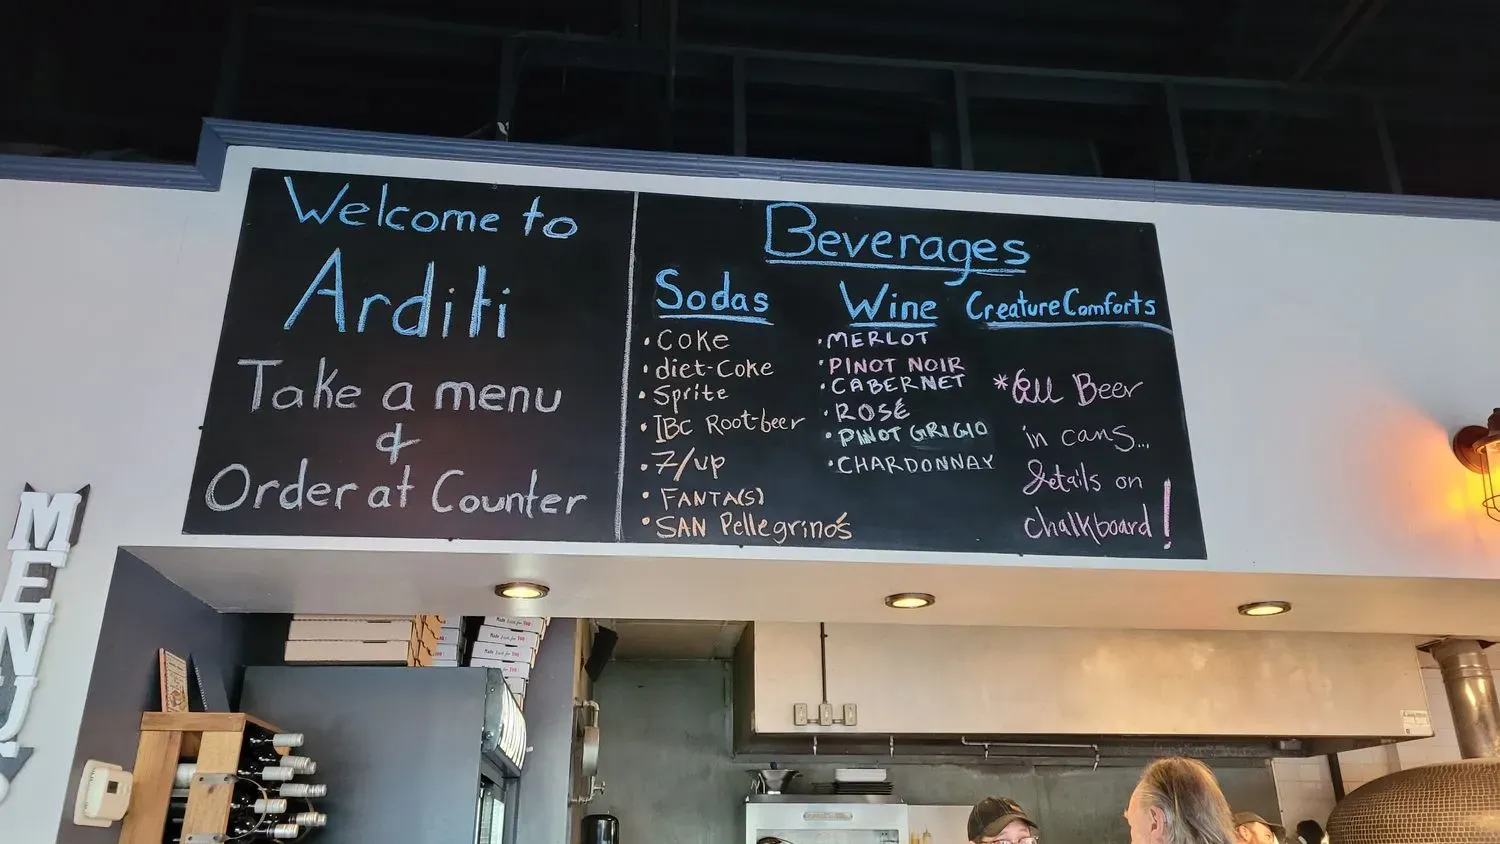 Welcome to
Arditi
Take a menu
&
Order at Counter
Beverages
Sodas
• Coke
• diet-Coke
• Sprite
• IBC Root-beer
• 7/up
• FANTA(S)
• SAN Pellegrino's
Wine
• MERLOT
• PINOT NOIR
• CABERNET
• ROSÉ
• PINOT GRIGIO
• CHARDONNAY
Creature Comforts
*All Beer
in cans...
details on
chalkboard!
MENU